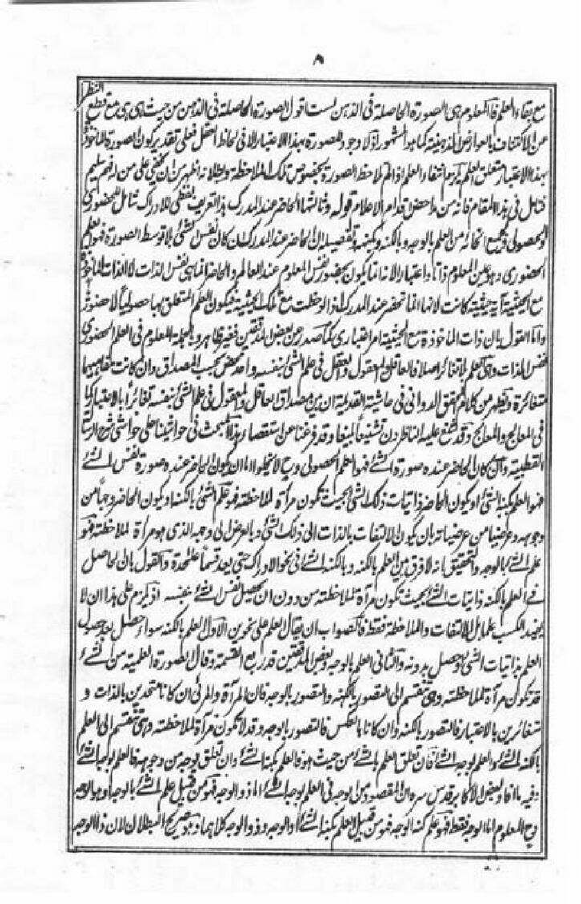 ٨
النظر
مع بقاء العلم فالمعلوم هى الصورة الحاصلة فى الذهن ليست اقول الصورة الحاصلة فى الذهن من حيث هى هى مع قطع
عن الاكتناف بالعوارض الذهنية كما هو المشهور اذ لا وجود للصورة بهذا الاعتبار الا فى لحاظ العقل فعلى تقدير كون الصورة الماخوذة
بهذا الاعتبار متعلق العلم يلزم انتفاء العلم اذا لم يلاحظ الصورة بخصوص تلك الملاحظة وبطلانه اظهر من ان يخفى على من له فهم سليم
فتامل فى هذا المقام فانه من مداحض اقدام الاعلام قوله وثالثها الحاضر عند المدرك هذا التعريف لفظى للادراك شامل للحضورى
والحصولى وجميع انحائه من العلم بالوجه وبالكنه وكنهه وتفصيله ان الحاضر عند المدرك ان كان نفس الشى بلا توسط الصورة فهو العلم
الحضورى وهو عين المعلوم ذاتا واعتبارا لانه انما يكون بحضور نفس المعلوم عند العالم والحاضر انما هى نفس الذات لا الذات الماخوذة
مع الحيثية اية حيثية كانت لانها انما تحضر عند المدرك اذا لوحظت مع تلك الحيثية فيكون العلم المتعلق بها حصوليا لا حضوريا
واما القول بان ذات الماخوذة مع الحيثية امر اعتبارى كما صدر عن بعض المدققين ففيه ظاهر وبالجملة المعلوم فى العلم الحضورى
نفس الذات وهى العلم لا تغاير اصلا فالعاقل والمعقول والعقل فى علم الشى بنفسه واحد محض بحسب المصداق وان كانت مفاهيمها
متغائرة ويظهر من كلام المحقق الدوانى فى حاشيته القديمة ان بين مصداق العاقل والمعقول فى علم الشى بنفسه تغائرا بالاعتبار كما
فى المعالج والمعالج وقد شنع عليه الناظرون تشنيعا بليغا وقد فرغنا عن استقصاء هذا المبحث فى حواشينا على حواشى شرح الرسالة
القطبية وان كان الحاضر عنده صورة الشئ فهو العلم الحصولى وح لا يخلو اما ان يكون الحاضر عنده صورة نفس الشئ
فهو العلم بكنه الشئ او يكون الحاضر ذاتيات ذلك الشى بحيث تكون مرآة لملاحظته فهو علم الشئ بالكنه او يكون الحاضر وجها من
وجوهه وعرضيا من عرضياته بان يكون الالتفات بالذات الى ذلك الشئ وبالعرض الى وجهه الذى هو مرآة لملاحظته فهو
علم الشئ بالوجه والتحقيق انه لا فرق بين العلم بالكنه وبكنه الشئ فى نحو الادراك حتى يعد قسما علحدة والقول بان الحاصل
فى العلم بالكنه ذاتيات الشئ بحيث تكون مرآة لملاحظته من دون ان يحصل نفس الشئ بنفسه اذ يلزم على هذا ان لا
يفيد الكسب علما بل الالتفات والملاحظة فقط فالصواب ان يقال العلم على نحوين الاول العلم بالكنه سواء حصل بتوصيل
العلم بذاتيات الشئ او حصل بدونه والثانى العلم بالوجه وبعض المدققين قد ربع القسمة وقال الصورة العلمية من الشئ
قد تكون مرآة لملاحظته وهى تنقسم الى المقصور بالكنه والمقصور بالوجه فان المرآة والمرئى ان كانا متحدين بالذات و
متغائرين بالاعتبار فالمقصور بالكنه وان كانا بالعكس فالمقصور بالوجه وقد لا تكون مرآة لملاحظته وهى تنقسم الى العلم
بالكنه الشئ والعلم بوجه الشئ فان تعلق العلم بالشئ من حيث هو فالعلم بكنه الشئ وان تعلق بوجه من وجوهه فالعلم بوجه الشئ
وفيه ما افاد بعض الاكابر قدس سره ان المقصود من بوجه فى العلم بوجه الشئ اما ذو الوجه فهو من قبيل علم الشئ بالوجه او هو الوجه
وح المعلوم اما الوجه فقط فهو علم كنه الوجه فهو من قبيل العلم بكنه الشئ او الوجه وذو الوجه كلاهما وهو صريح البطلان لان ذا الوجه